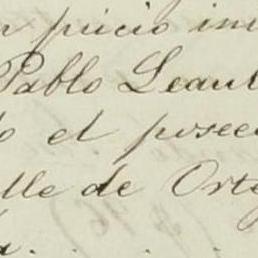 n juicio in
Pablo Leaul
o el posee
lle de Orte
a.